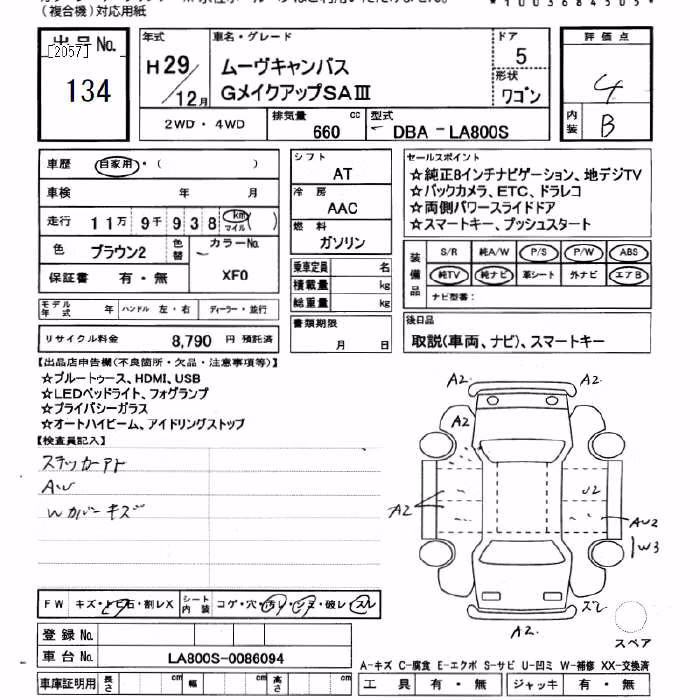 (複合機)対応用紙
*1003684505*
出品No.
[2057]
134
年式
H29/12月
車名・グレード
ムーヴキャンバス
GメイクアップSAⅢ
ドア
5
形状
ワゴン
評価点
4
内装
B
2WD・4WD
排気量
660 cc
型式
DBA－LA800S
車歴 自家用・( )
車検 年 月
走行 11万 9千 938 km マイル ( )
色 ブラウン2
色替
カラーNo.
XF0
保証書 有・無
シフト
AT
冷房
AAC
燃料
ガソリン
乗車定員 名
積載量 kg
総重量 kg
セールスポイント
☆純正8インチナビゲーション、地デジTV
☆バックカメラ、ETC、ドラレコ
☆両側パワースライドドア
☆スマートキー、プッシュスタート
装備品
S/R 純A/W P/S P/W ABS
純TV 純ナビ 革シート 外ナビ エアB
ナビ型番:
モデル年式 年 ハンドル 左・右 ディーラー・並行
リサイクル料金 8,790 円 預託済
書類期限
月 日
後日品
取説(車両、ナビ)、スマートキー
【出品店申告欄(不良箇所・欠品・注意事項等)】
☆ブルートゥース、HDMI、USB
☆LEDヘッドライト、フォグランプ
☆プライバシーガラス
☆オートハイビーム、アイドリングストップ
【検査員記入】
ステッカーアト
AW
Wカバーキズ
A2 A2
A2
A2
U2
AU2
W3
A2
ズレ
スペア
FW キズ・トビ石・割レX
シート内装 コゲ・穴・汚レ・シミ・破レ・スレ
登録No.
車台No. LA800S-0086094
車庫証明用 長さ cm 幅 cm 高さ cm
A-キズ C-腐食 E-エクボ S-サビ U-凹ミ W-補修 XX-交換済
工具 有・無 ジャッキ 有・無